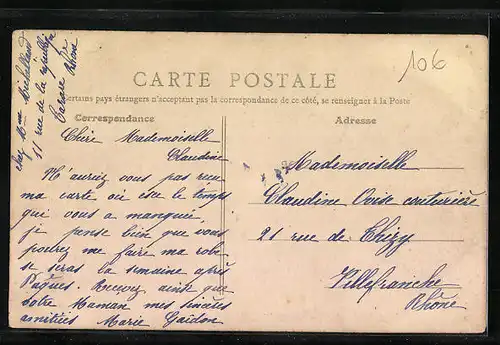 chez Mme Michalland
11 rue de la république
Tarare Rhône
106
CARTE POSTALE
Certains pays étrangers n'acceptant pas la correspondance de ce côté, se renseigner à la Poste
Correspondance
Adresse
Chère Mademoiselle
Claudine
N'auriez vous pas reçu
ma carte où est ce le temps
qui vous a manquée,
je pense bien que vous
pourez me faire ma robe
se seras la semaine après
Pâques. Recevez ainsi que
votre Maman mes sincères
amitiées Marie Gaidon
Mademoiselle
Claudine couturière
21 rue de Thizy
Villefranche
Rhône